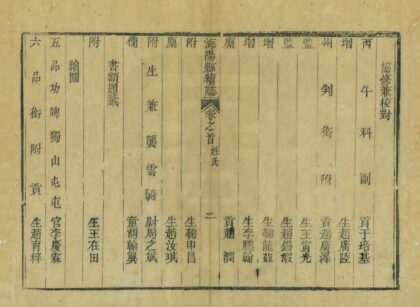 協修兼校對
丙午科副貢于培基
增生趙廣陞
州判銜附貢趙廣澤
監生王寅光
監生趙錫嘏
增生鞠龍茲
增生李鵬翰
廩貢趙澗
海陽縣續誌 卷之首姓氏 二
廩生鞠甲昌
廩生趙汝琪
附生兼襲雲騎尉周之斌
儒童胡翰翼
書額題籤
附生王在田
繪圖
五品功牌獨山屯屯官李慶霖
六品銜附貢生趙育梓